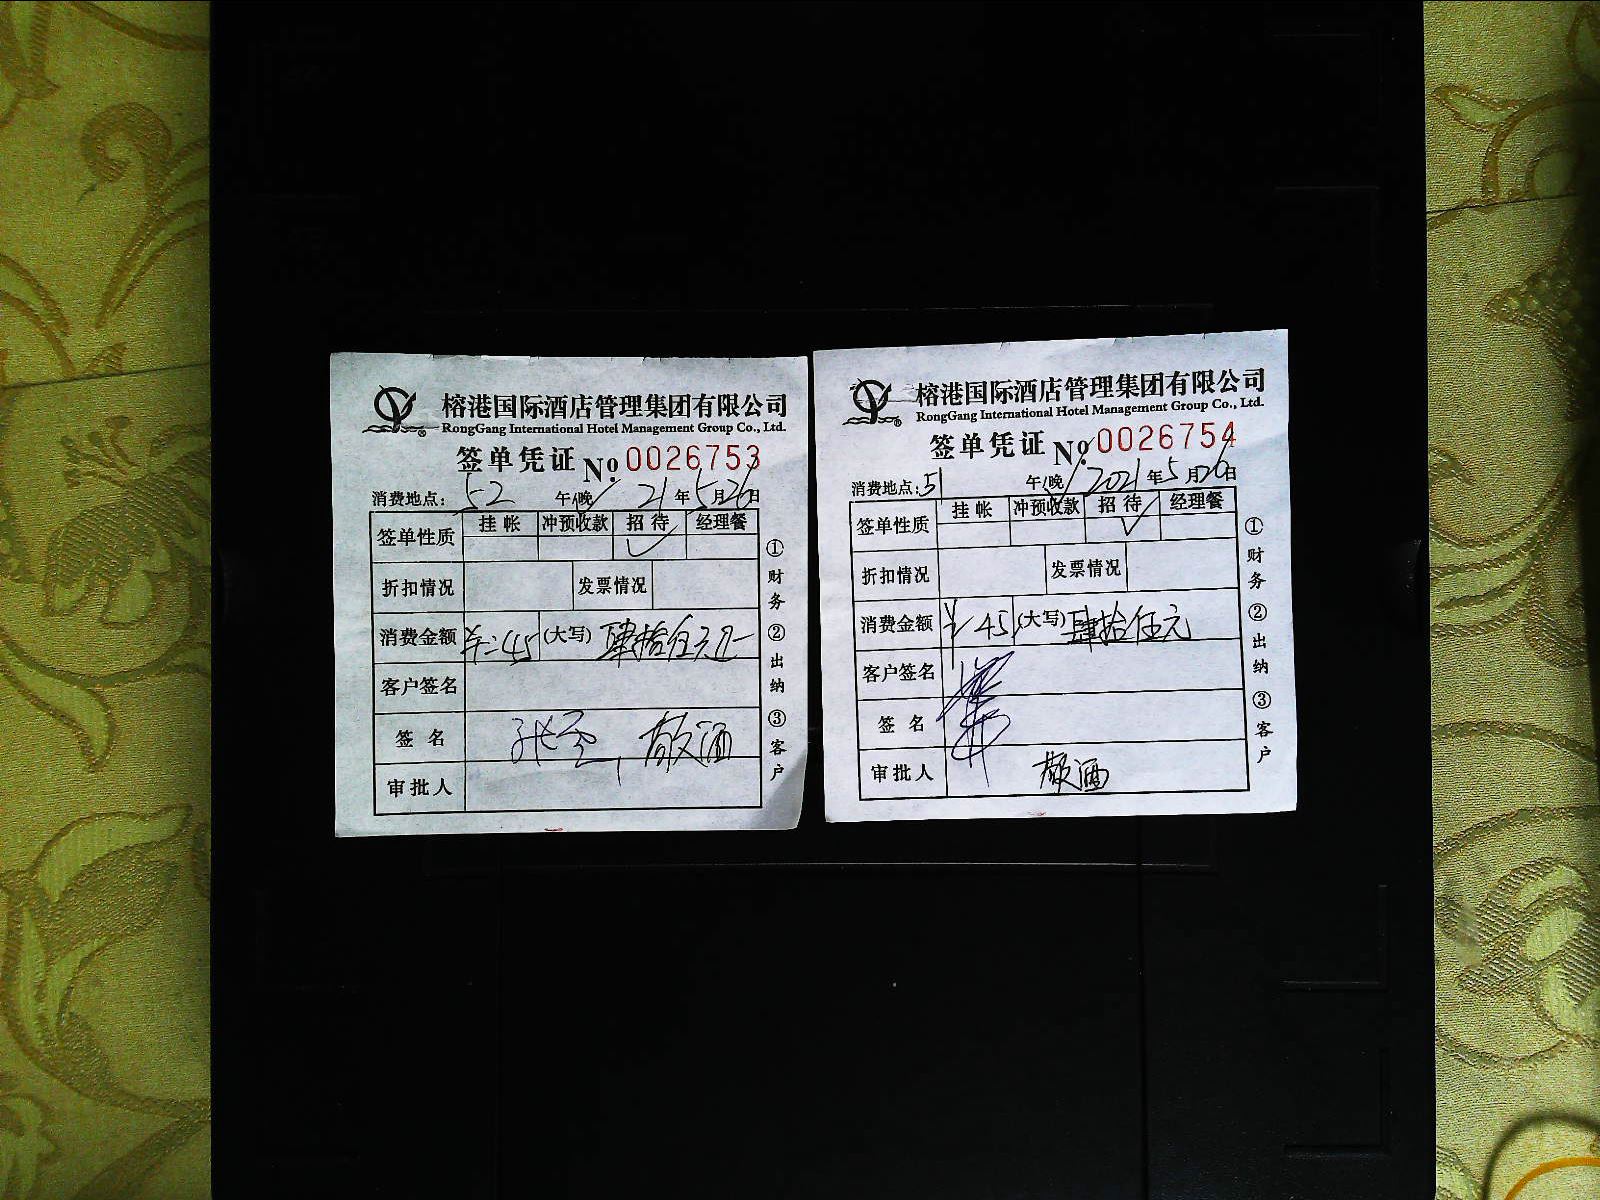 榕港国际酒店管理集团有限公司
RongGang International Hotel Management Group Co., Ltd.
签单凭证 No. 0026753
消费地点: 52 午/晚 21年5月26日
签单性质 挂帐 冲预收款 招待 经理餐
✓
折扣情况 发票情况
消费金额 ¥:45 (大写) 肆拾伍元
客户签名
签名 敬酒
审批人
①财务 ②出纳 ③客户
榕港国际酒店管理集团有限公司
RongGang International Hotel Management Group Co., Ltd.
签单凭证 No. 0026754
消费地点: 51 午/晚 2021年5月26日
签单性质 挂帐 冲预收款 招待 经理餐
✓
折扣情况 发票情况
消费金额 ¥45 (大写) 肆拾伍元
客户签名
签名
审批人 敬酒
①财务 ②出纳 ③客户